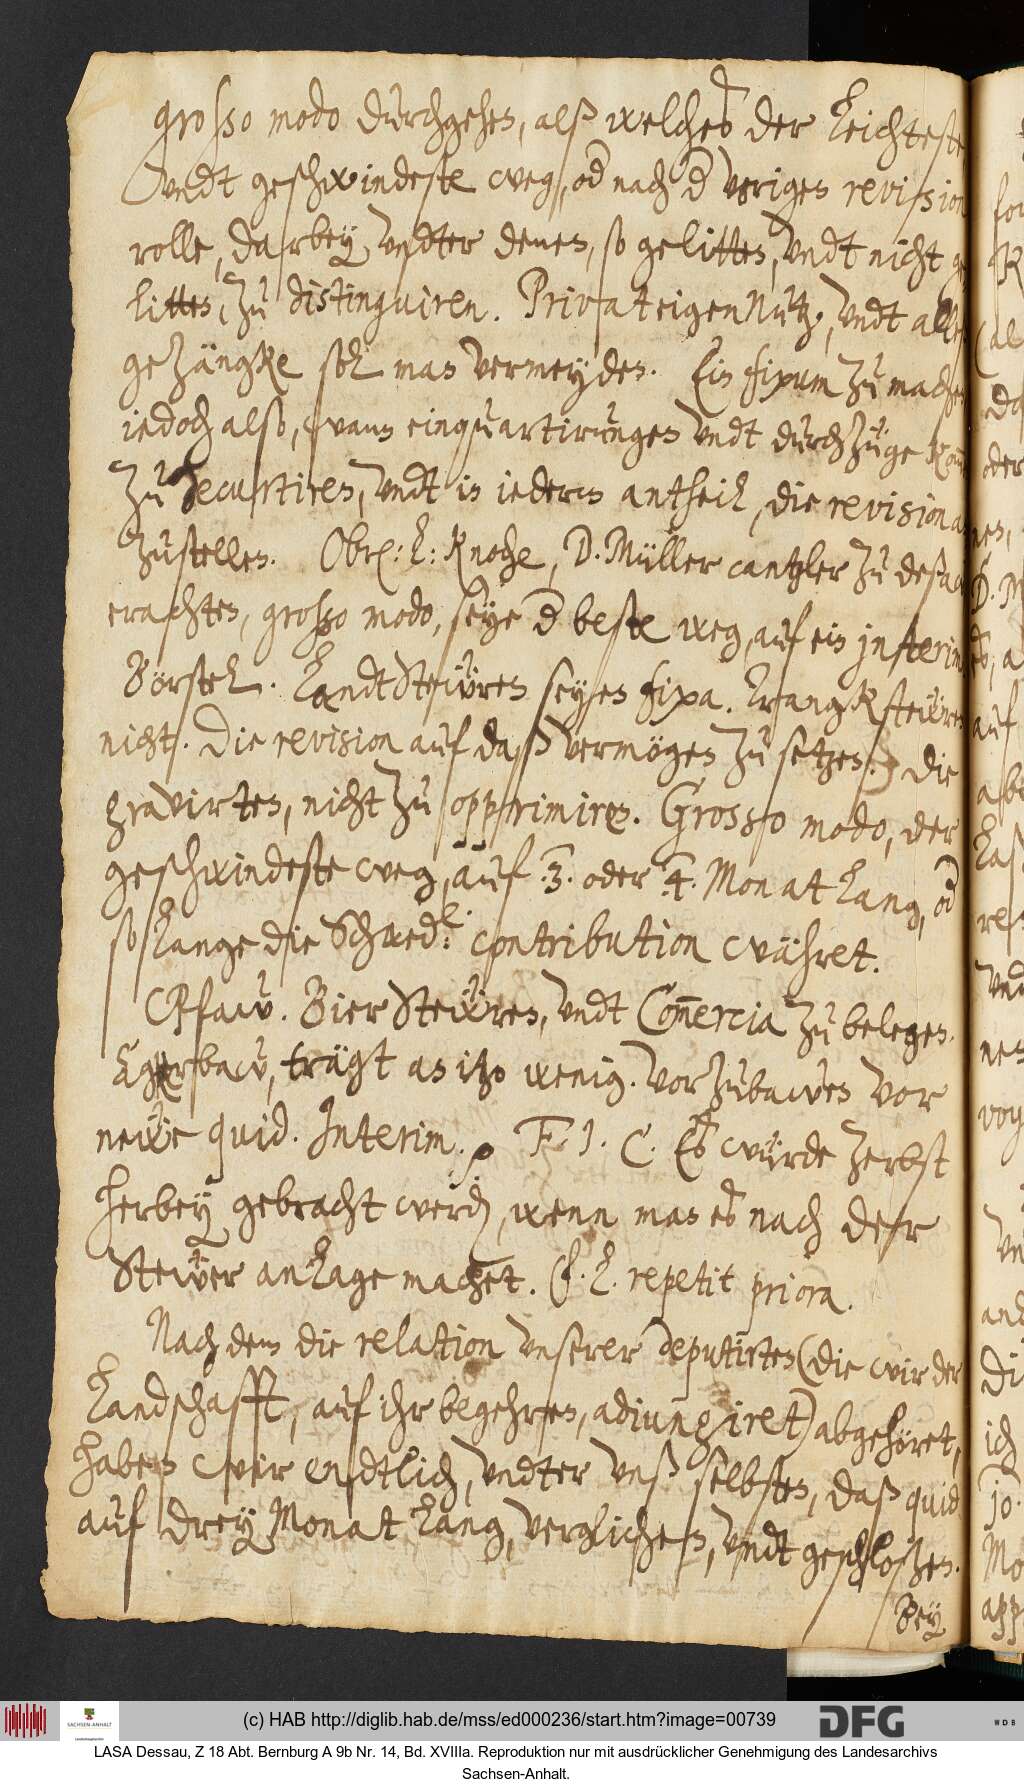 grosso modo durchgehen, alß welches der leichteste
vndt geschwindeste weg, od nach d voriges revision
rolle, darbey vndter denen, so gelitten, vndt nicht ge
litten, zu distinguiren. Privat eigen Nutz, vndt alles
gezängke sol man vermeyden. Ein fixum zu machen
iedoch also, wann einquartirungen vndt durchzüge
zu decurtiren, vndt in iederm antheil, die revision an
zustellen. Obrl: L: Knoche, D. Müller cantzler zu deßa
erachten, grosso modo, seye d beste weg, auf ein interim
Börstel. LandtSteüren seyen fixa. Trangksteüren
nicht. Die revision auf daß vermögen zu setzen. Die
gravirten, nicht zu opprimiren. Grosso modo, der
geschwindeste weg, auf .3. oder .4. Monat lang, od
so lange die Schwed: contribution währet.
Pfaw. BierSteüren, vndt Com̄ercia zu belegen.
Egerbaw, trägt an itzo wenig. vorzubawen vor
newe quid. Interim. F. J. C. Es würde Zerbst
herbey gebracht werd, wenn man es nach der
Stewer anlage machet. repetit priora.
Nachdem die relation vnserer deputirten (die wir der
Landschafft, auf ihr begehren, adiungiret) abgehöret,
haben wir endtlich, vndter vnß selbsten, daß quid
auf drey Monat lang, verglichen, vndt geschloßen.
Bey
(c) HAB http://diglib.hab.de/mss/ed000236/start.htm?image=00739
DFG
WDB
SACHSEN-ANHALT
LASA Dessau, Z 18 Abt. Bernburg A 9b Nr. 14, Bd. XVIIIa. Reproduktion nur mit ausdrücklicher Genehmigung des Landesarchivs
Sachsen-Anhalt.